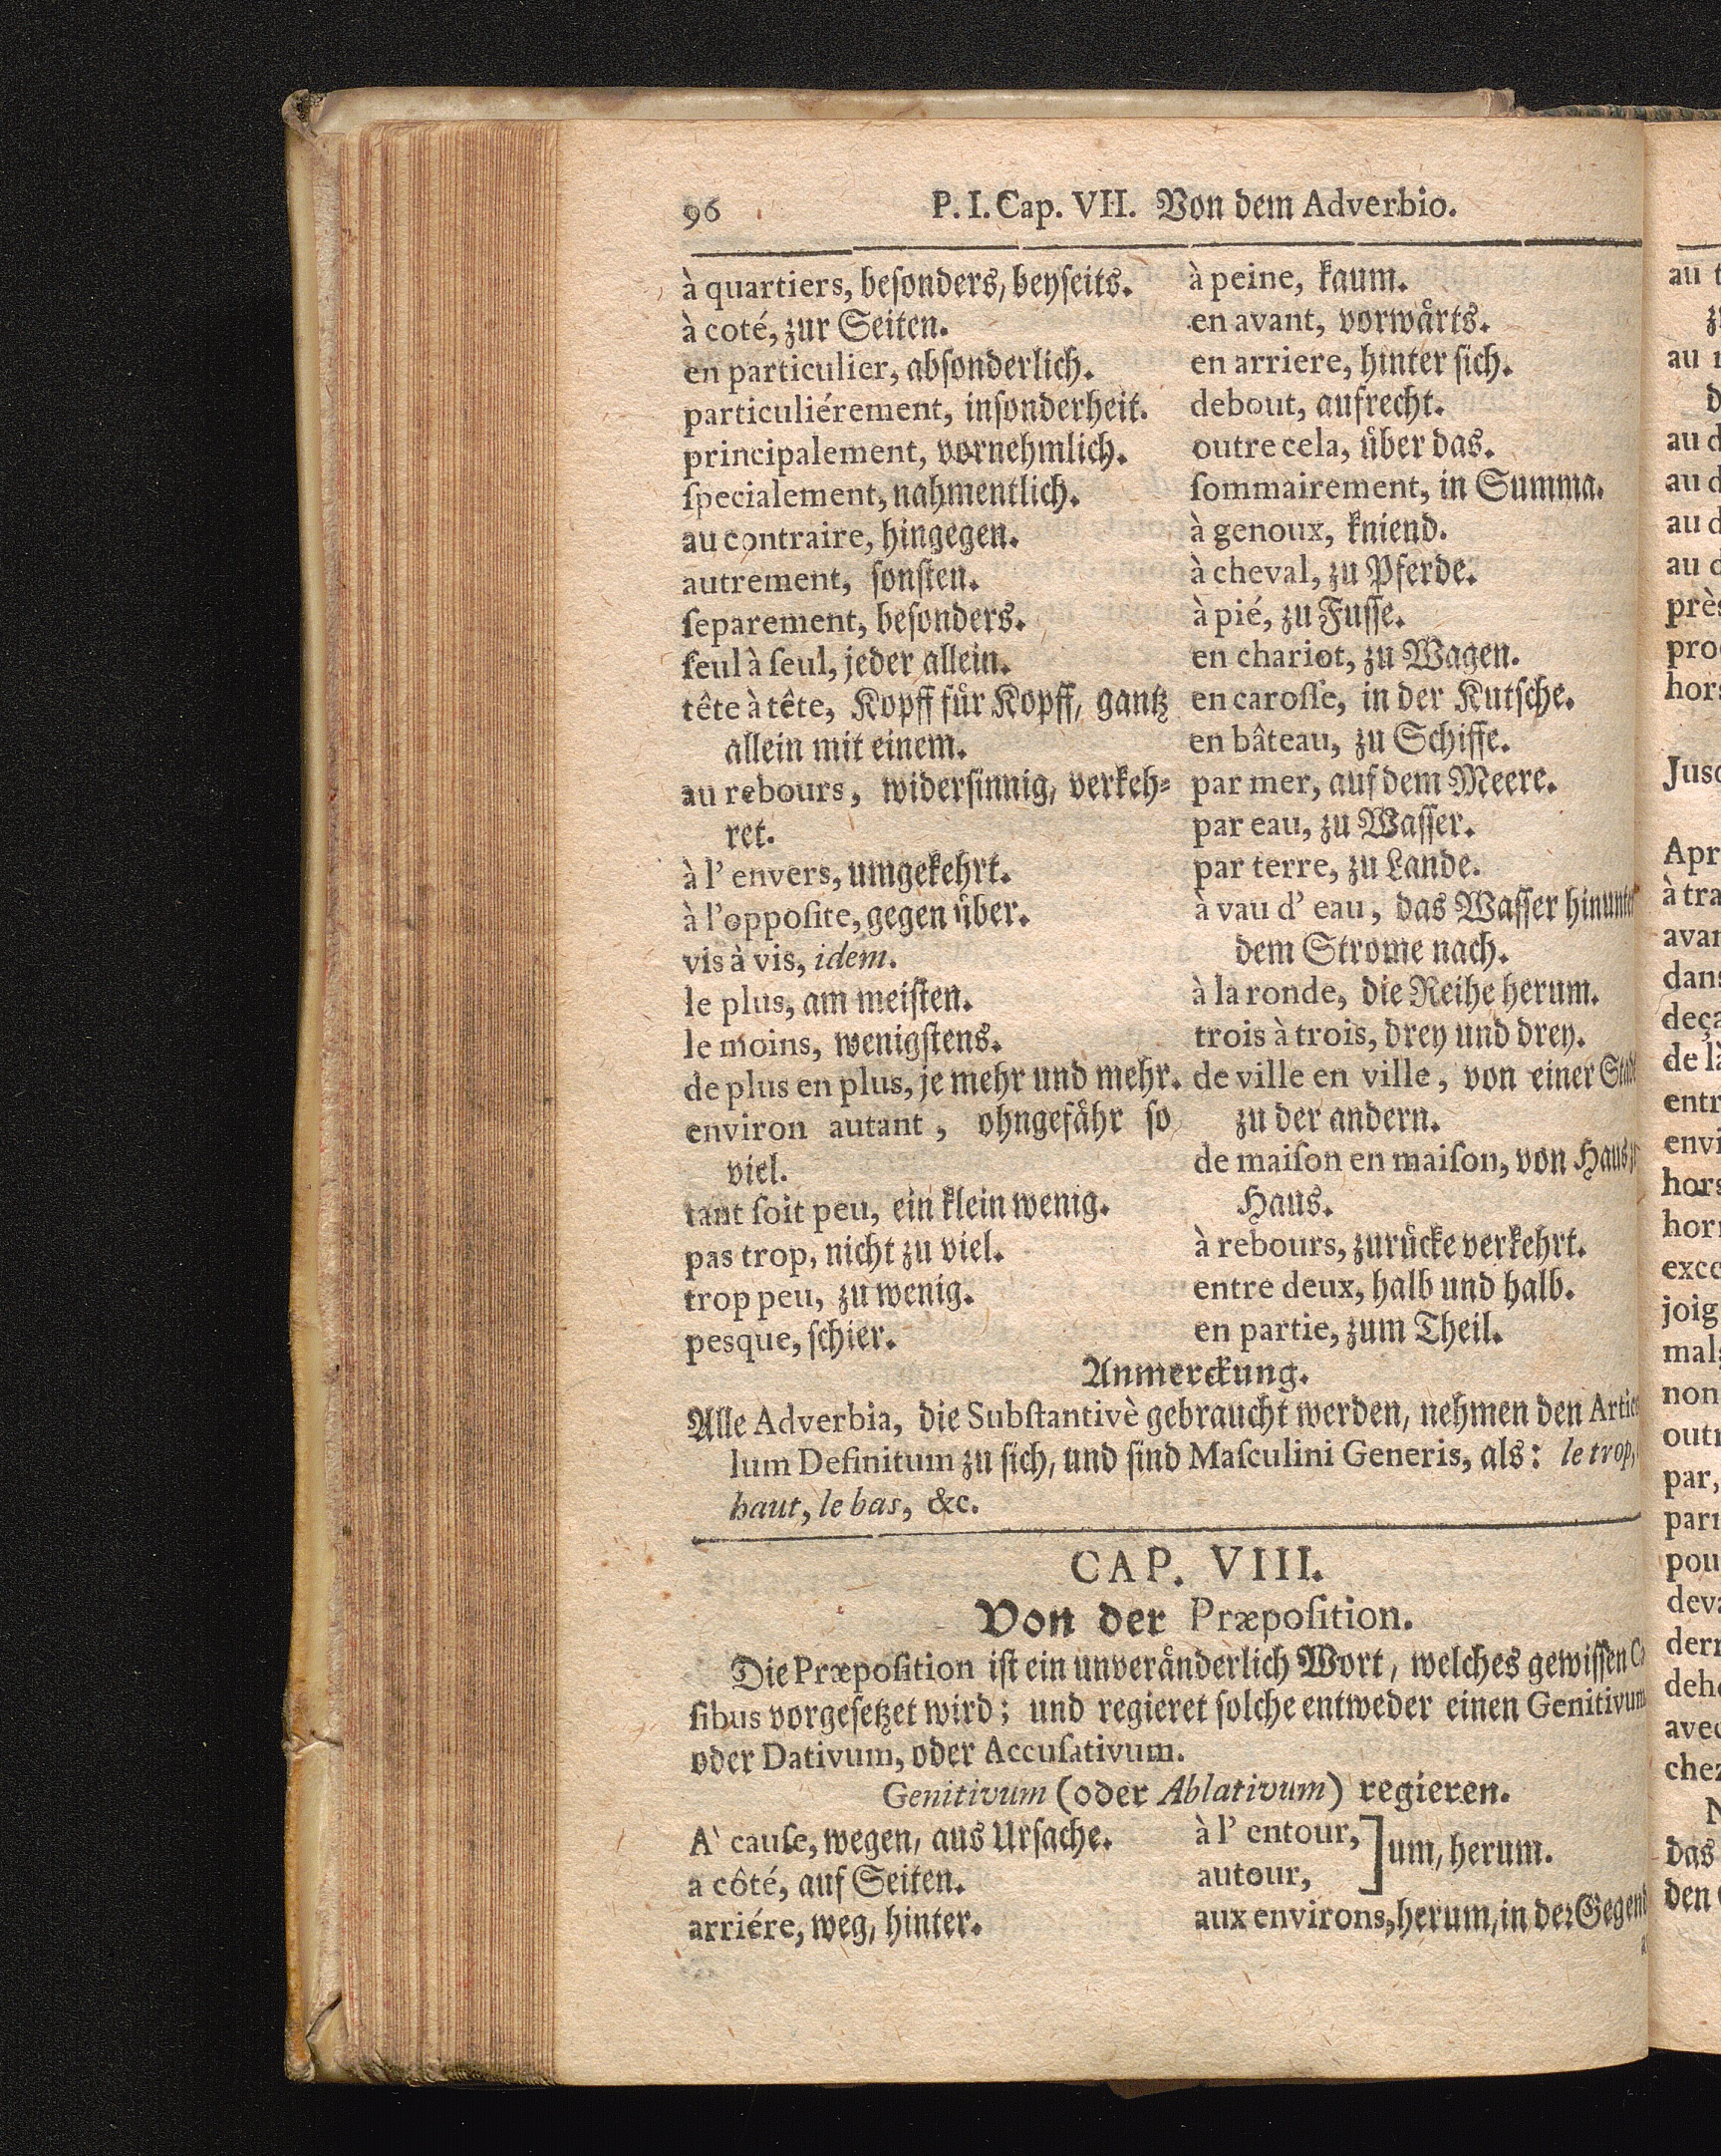 96 P. I. Cap. VII. Von dem Adverbio.
à quartiers, beſonders, beyſeits.
à coté, zur Seiten.
en particulier, abſonderlich.
particuliérement, inſonderheit.
principalement, vornehmlich.
ſpecialement, nahmentlich.
au contraire, hingegen.
autrement, ſonſten.
ſeparement, beſonders.
ſeul à ſeul, jeder allein.
tête à tête, Kopff fuͤr Kopff, gantz
allein mit einem.
au rebours, widerſinnig, verkeh⸗
ret.
à l' envers, umgekehrt.
à l'oppoſite, gegen uͤber.
vis à vis, idem.
le plus, am meiſten.
le moins, wenigſtens.
de plus en plus, je mehr und mehr.
environ autant, ohngefaͤhr ſo
viel.
tant ſoit peu, ein klein wenig.
pas trop, nicht zu viel.
trop peu, zu wenig.
pesque, ſchier.
à peine, kaum.
en avant, vorwaͤrts.
en arriere, hinter ſich.
debout, aufrecht.
outre cela, uͤber das.
ſommairement, in Summa.
à genoux, kniend.
à cheval, zu Pferde.
à pié, zu Fuſſe.
en chariot, zu Wagen.
en caroſſe, in der Kutſche.
en bâteau, zu Schiffe.
par mer, auf dem Meere.
par eau, zu Waſſer.
par terre, zu Lande.
à vau d' eau, das Waſſer hinunter
dem Strome nach.
à la ronde, die Reihe herum.
trois à trois, drey und drey.
de ville en ville, von einer Stadt
zu der andern.
de maiſon en maiſon, von Haus
Haus.
à rebours, zuruͤcke verkehrt.
entre deux, halb und halb.
en partie, zum Theil.
Anmerckung.
Alle Adverbia, die Subſtantivè gebraucht werden, nehmen den Artic
lum Definitum zu ſich, und ſind Maſculini Generis, als: le trop,
haut, le bas, &c.
CAP. VIII.
Von der Præpoſition.
Die Præpoſition iſt ein unveraͤnderlich Wort, welches gewiſſen Ca
ſibus vorgeſetzet wird; und regieret ſolche entweder einen Genitivum
oder Dativum, oder Accuſativum.
Genitivum (oder Ablativum) regieren.
A' cauſe, wegen, aus Urſache.
a côté, auf Seiten.
arriére, weg, hinter.
à l' entour,
autour,
] um, herum.
aux environs, herum, in der Gegend